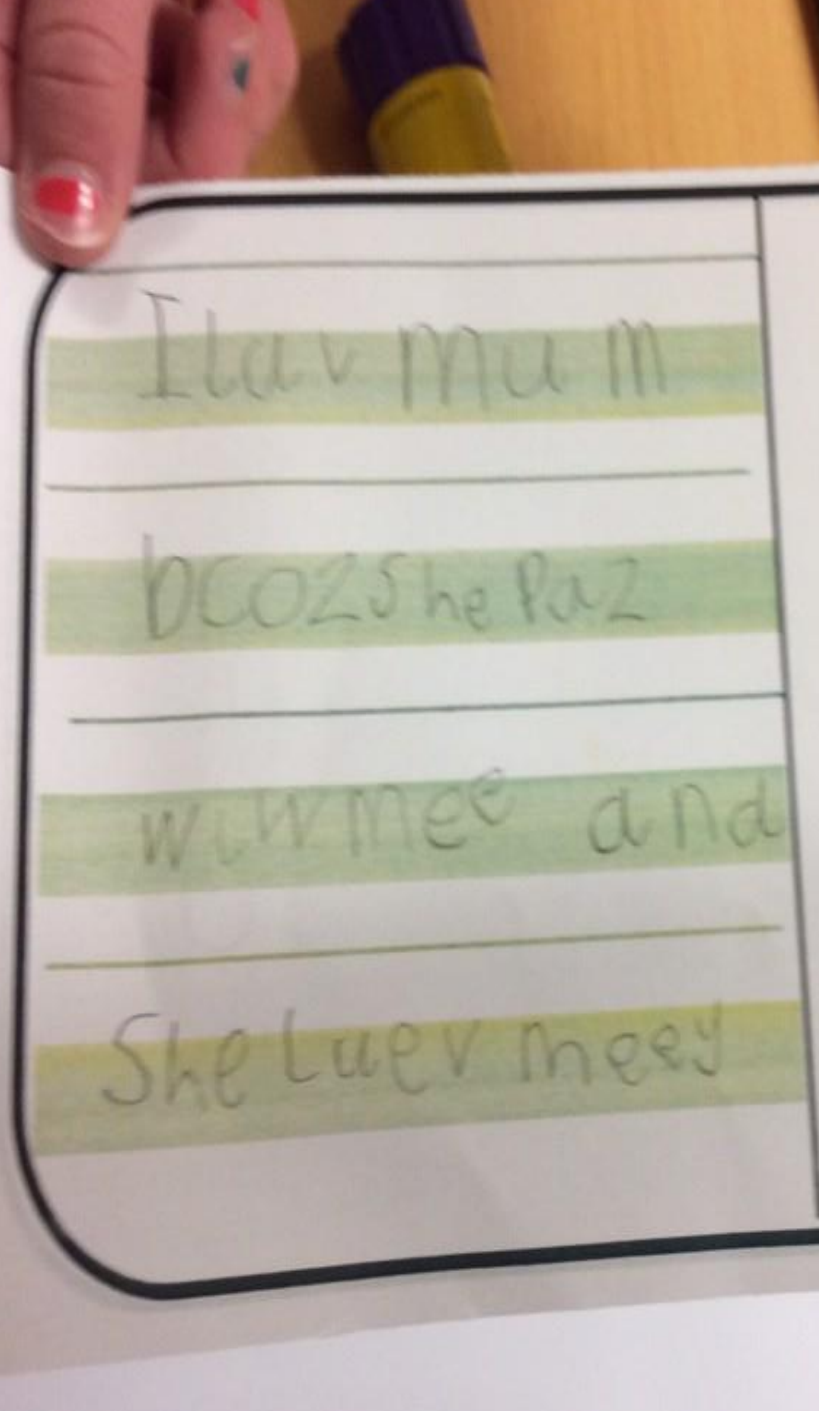 I lav mum
bcoz she Paz
wiw mee and
She luev meey